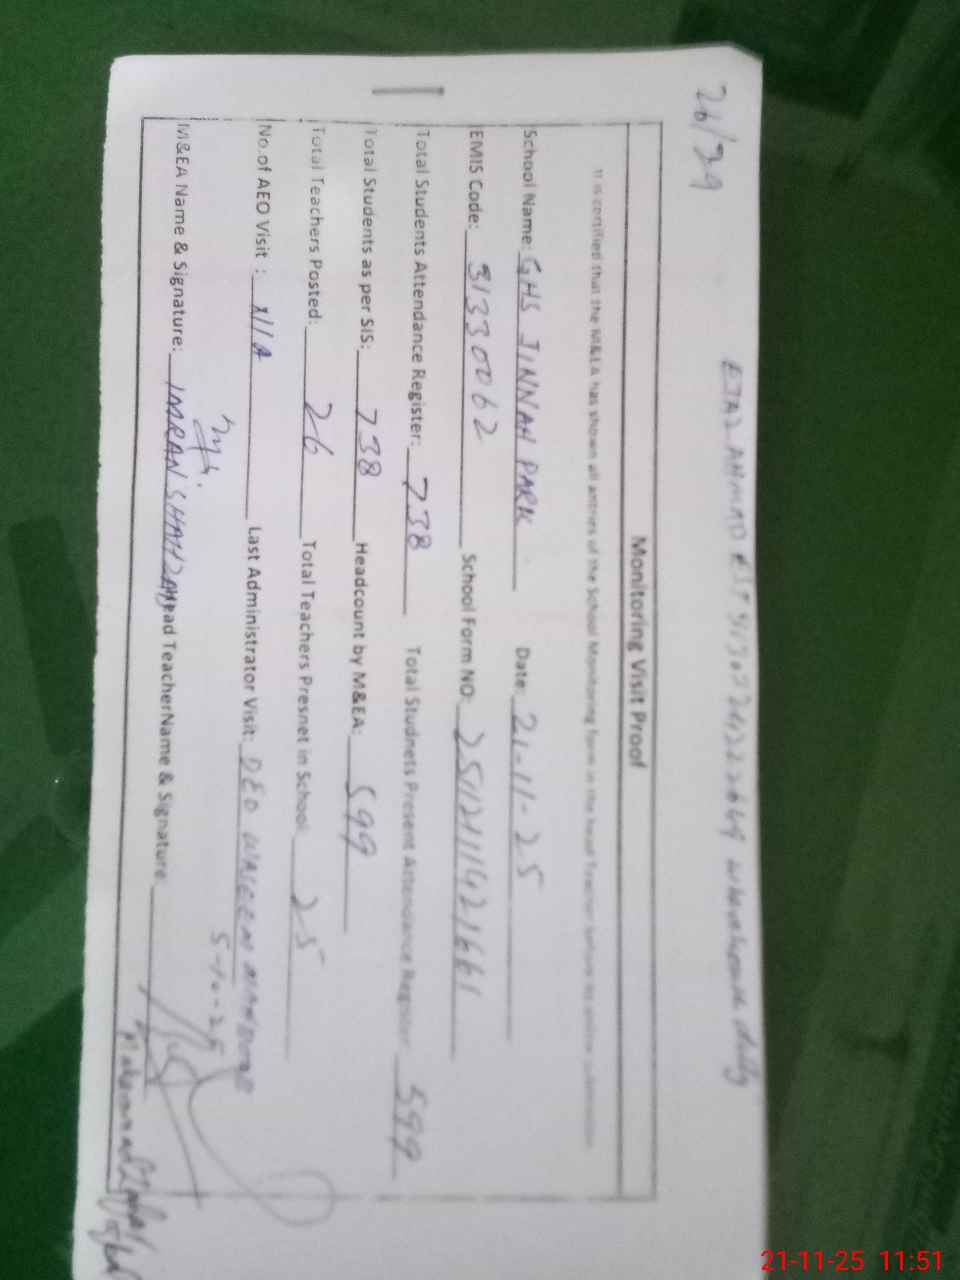 26/29
EJAZ AHMAD EST warehouse duty
Monitoring Visit Proof
It is certified that the M&EA has shown all entries of the School Monitoring form in the head Teacher before its online submission
School Name: GHS JINNAH PARK Date: 21-11-25
EMIS Code: 31330062 School Form NO:
Total Students Attendance Register: 738 Total Studnets Present Attendance Register: 599
Total Students as per SIS: 738 Headcount by M&EA: 599
Total Teachers Posted: 26 Total Teachers Presnet in School: 25
No of AEO Visit : Last Administrator Visit: DEO WASEEM
5-10-25
M&EA Name & Signature: IMRAN SHAHZAD Head Teacher Name & Signature:
21-11-25 11:51